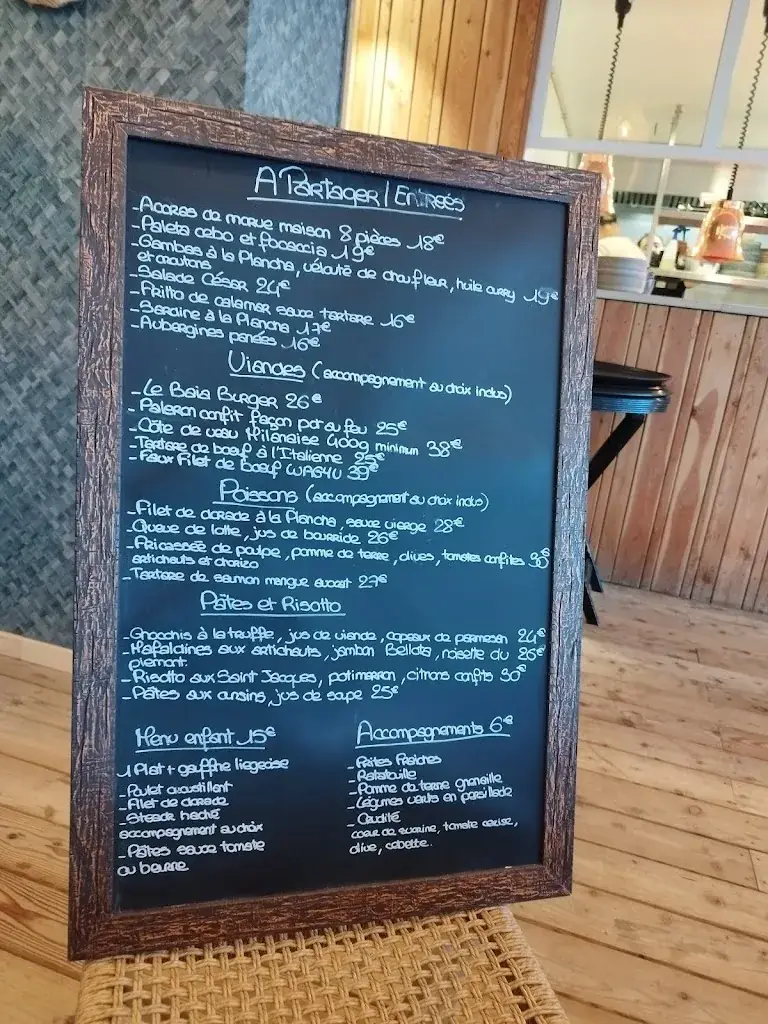 A Partager / Entrées
-Accras de morue maison 8 pièces 18€
-Paleta cebo et focaccia 19€
-Gambas à la Plancha, velouté de chouffleur, huile curry 19€
et croutons
-Salade César 24€
-Fritto de calamar sauce tartare 16€
-Sardine à la Plancha 17€
-Aubergines panées 16€
Viandes (accompagnement au choix inclus)
-Le Baia Burger 26€
-Paleron confit façon pot au feu 25€
-Côte de veau Milanaise 400g minimum 38€
-Tartare de boeuf à l'Italienne 25€
-Faux Filet de Boeuf WAGYU 39€
Poissons (accompagnement au choix inclus)
-Filet de dorade à la Plancha, sauce vierge 28€
-Queue de lotte, jus de bourride 26€
-Fricassée de poulpe, pomme de terre, olives, tomates confites 30€
artichauts et chorizo
-Tartare de saumon mangue avocat 27€
Pâtes et Risotto
-Gnocchis à la truffe, jus de viande, copeaux de parmesan 24€
-Mafaldines aux artichauts, jambon Bellota, noisette du 26€
piemont.
-Risotto aux Saint Jacques, potimarron, citrons confits 30€
-Pâtes aux oursins, jus de sape 25€
Menu enfant 15€
1 Plat + gauffre liegeoise
-Poulet croustillant
-Filet de dorade
-Steack haché
accompagnement au choix
-Pâtes sauce tomate
ou beurre
Accompagnements 6€
-Frites Fraîches
-Ratatouille
-Pomme de terre grenaille
-Légumes verts en persillade
-Crudité
coeur de sucrine, tomate cerise,
olive, cebette.